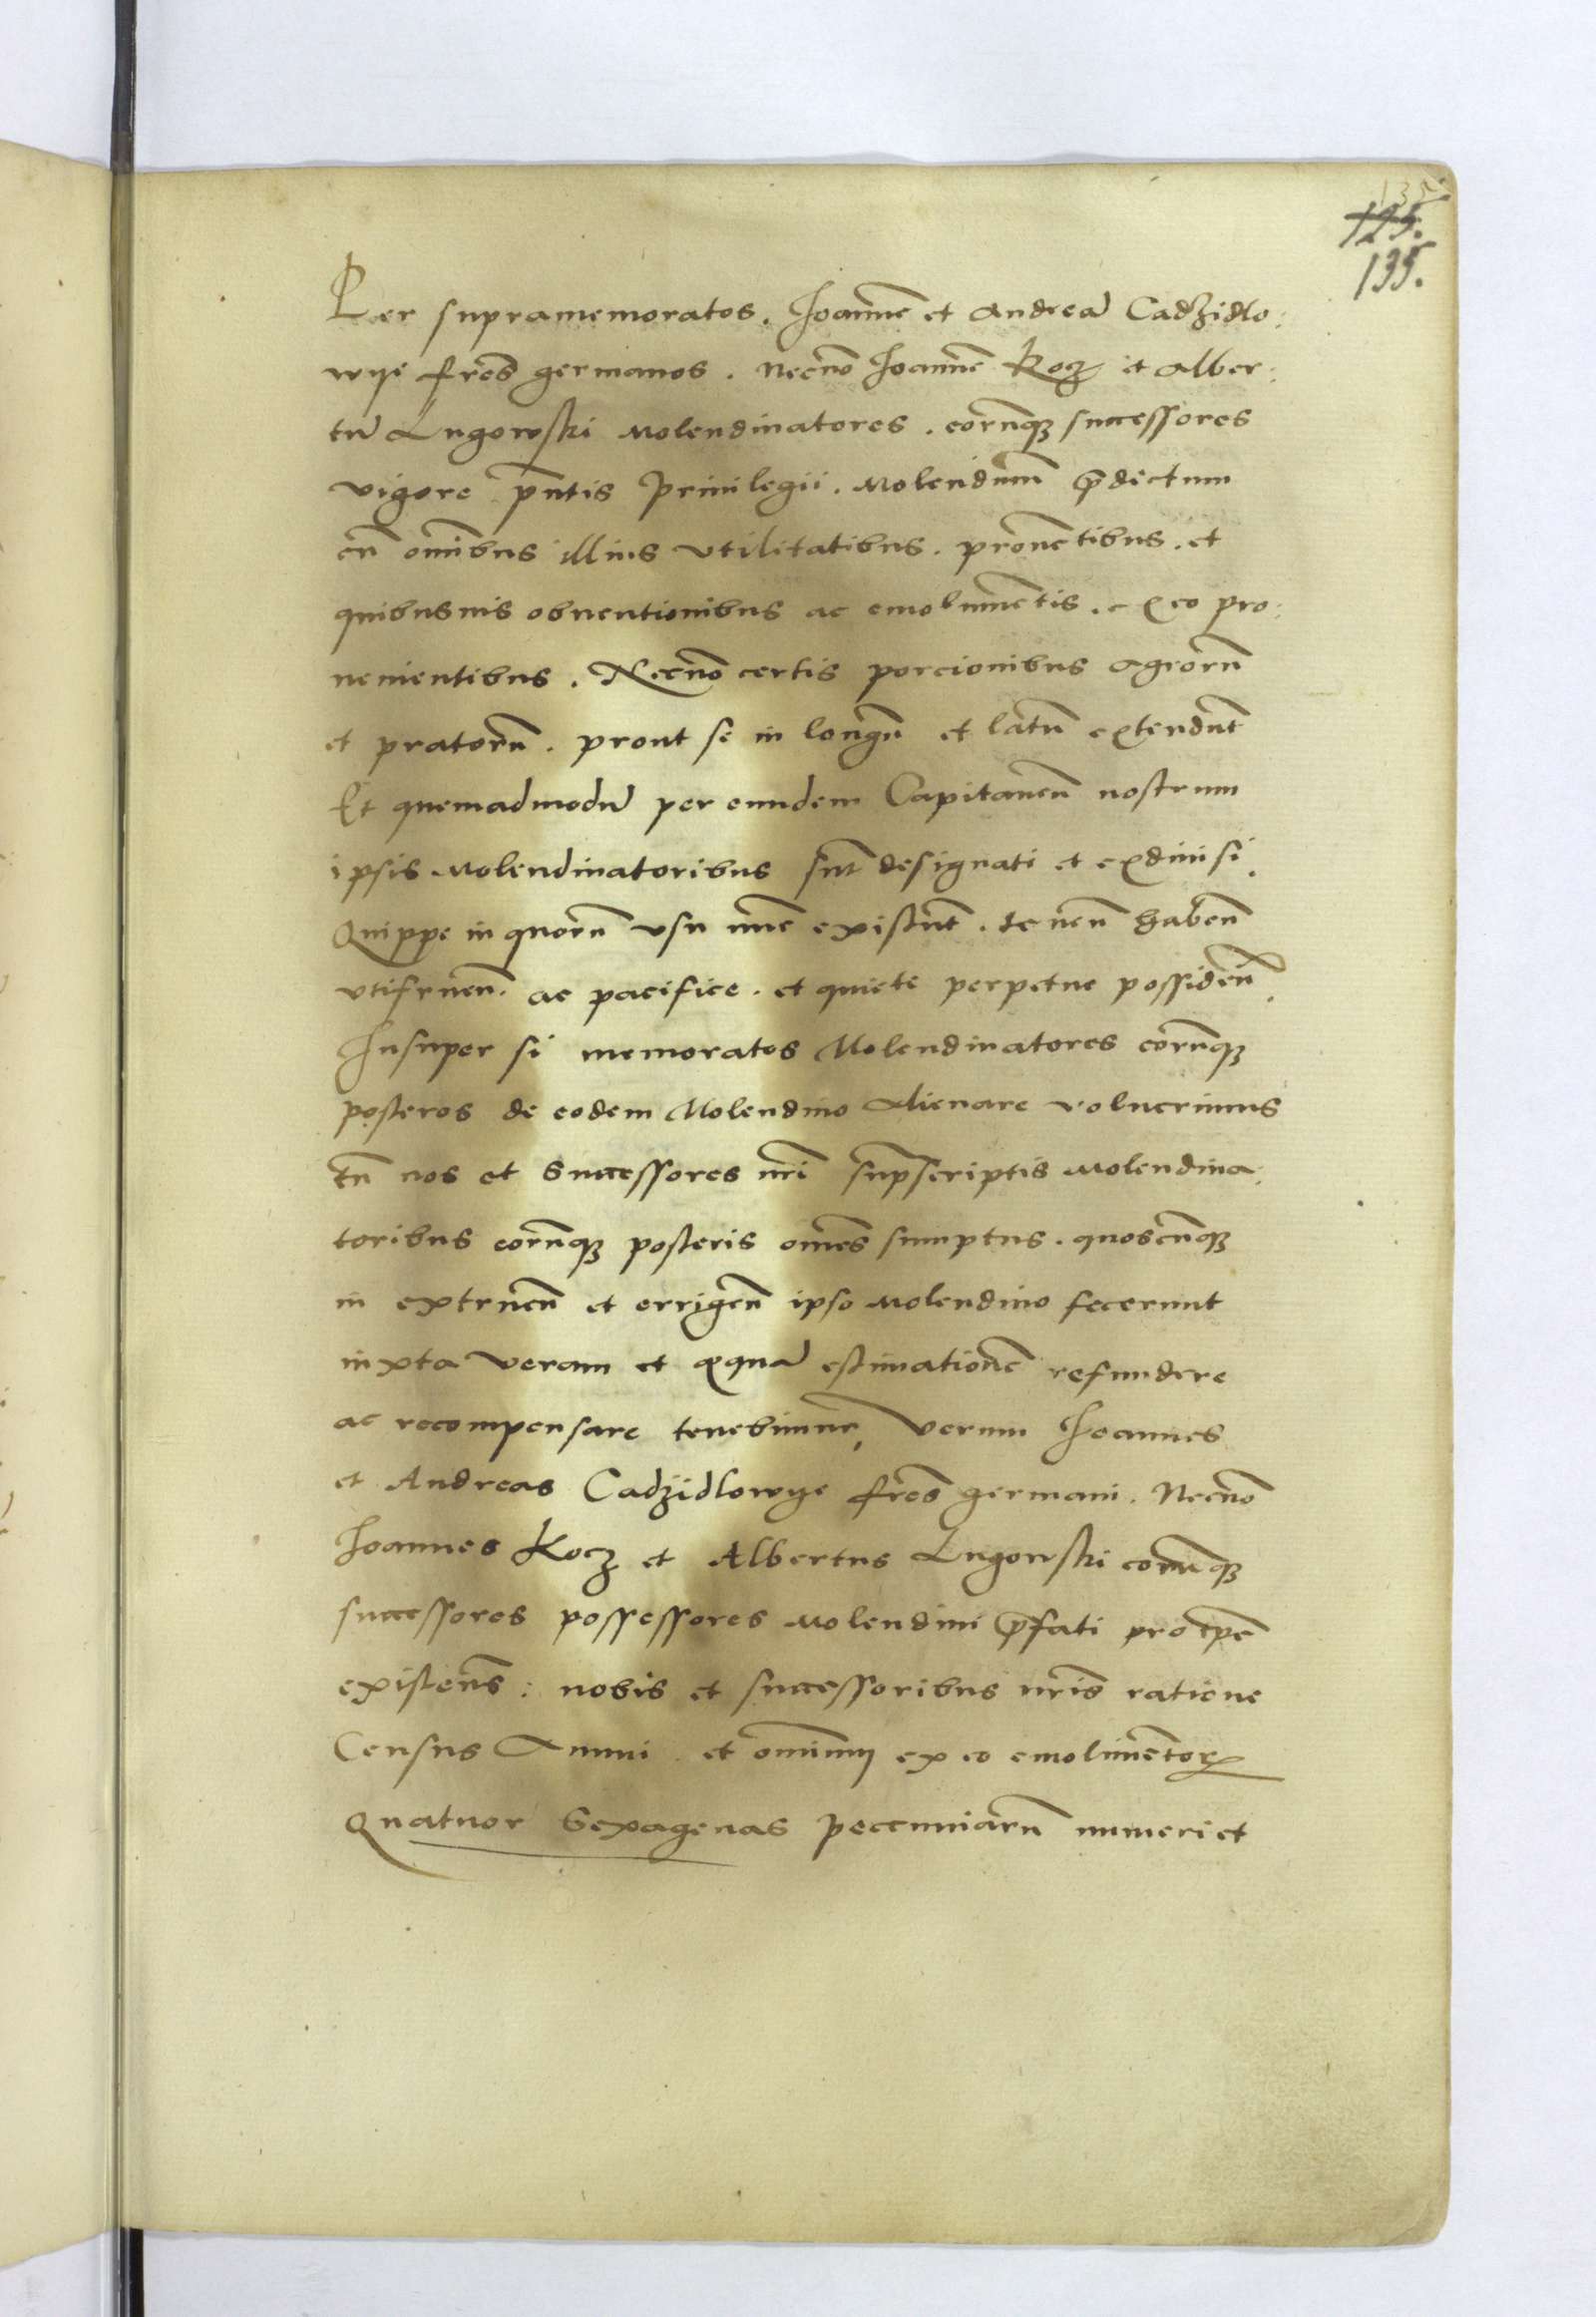 135
125.
135.
Per supramemoratos. Joannē et Andreā Cadzidlo:
wye frēs germanos. Necnō Joannē Kocz et Alber:
tū Lugowski Molendinatores. eorūqꝫ successores
vigore pn̄tis Priuilegii. Molendinū p̄dictum
cū omībus illius vtilitatibus. prouētibus. et
quibusuis obuentionibus ac emolumētis. ex eo pro:
uenientibus. Necnō certis porcionibus agrorū
et pratorū. prout se in longū et latū extendūt
Et quemadmodū per eundem Capitaneū nostrum
ipsis Molendinatoribus sūt designati et exdiuisi.
Quippe in quorū vsu nūc existūt. teneñ habeñ
vtifrueñ. ac pacifice. et quiete perpetue possideñ.
Insuper si memoratos Molendinatores eorūqꝫ
posteros de eodem Molendino Alienare voluerimus
tū nos et Successores nr̄i sup̄scriptis Molendina:
toribus eorūqꝫ posteris omēs sumptus. quoscūqꝫ
in extrueñ et errigeñ ipso Molendino fecerunt
iuxta veram et equā estimationē refundere
ac recompensare tenebimur, Verum Joannes
et Andreas Cadzidlowye frēs germani. Necnō
Joannes Kocz et Albertus Lugowski eorūqꝫ
successores possessores Molendini p̄fati pro tp̄e
existeñs: nobis et successoribus nr̄is ratione
Census Annui. et omniū ex eo emolimētorꝝ
Quatuor Sexagenas peccuniarū numeri et